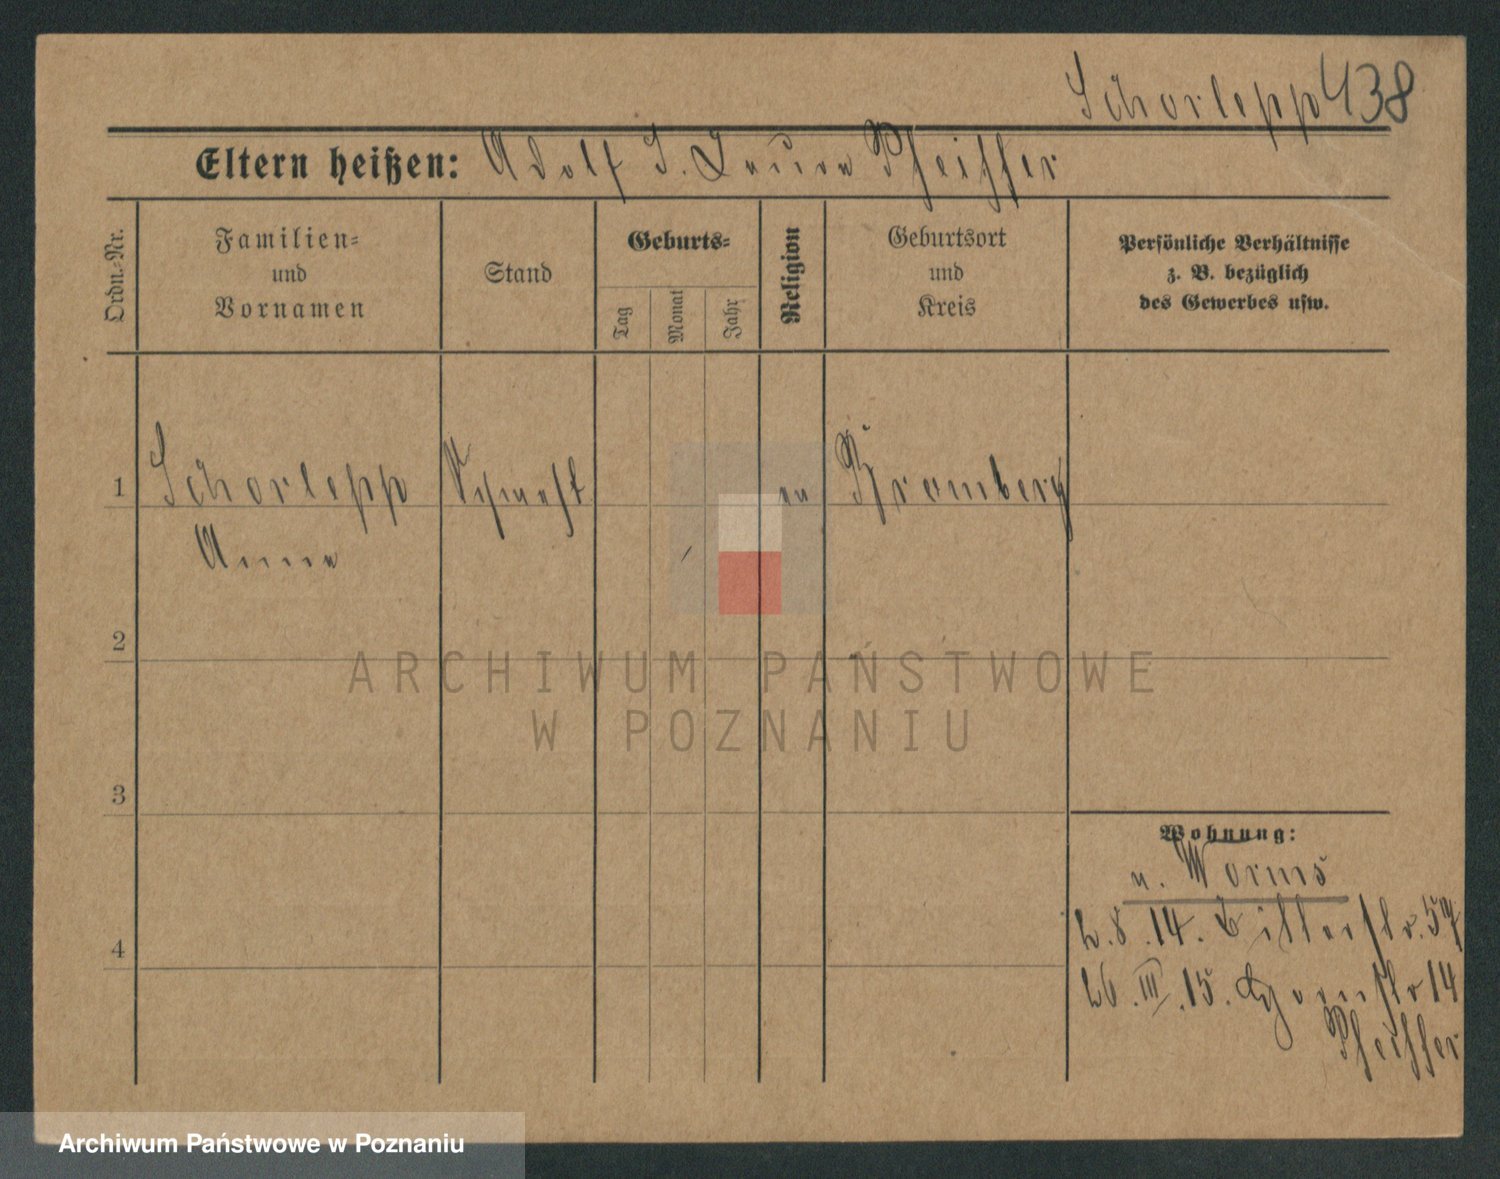 Schorlepp 438
Eltern heißen: Adolf Pfeiffer
Ordn.-Nr.
Familien-
und
Vornamen
Stand
Geburts-
Tag
Monat
Jahr
Religion
Geburtsort
und
Kreis
Persönliche Verhältnisse
z. B. bezüglich
des Gewerbes usw.
1 Schorlepp ev Bromberg
Anna
2
ARCHIWUM PAŃSTWOWE
W POZNANIU
3
Wohnung:
n. Worms
4
8.14. 57
26.III.15. 14
Pfeiffer
Archiwum Państwowe w Poznaniu